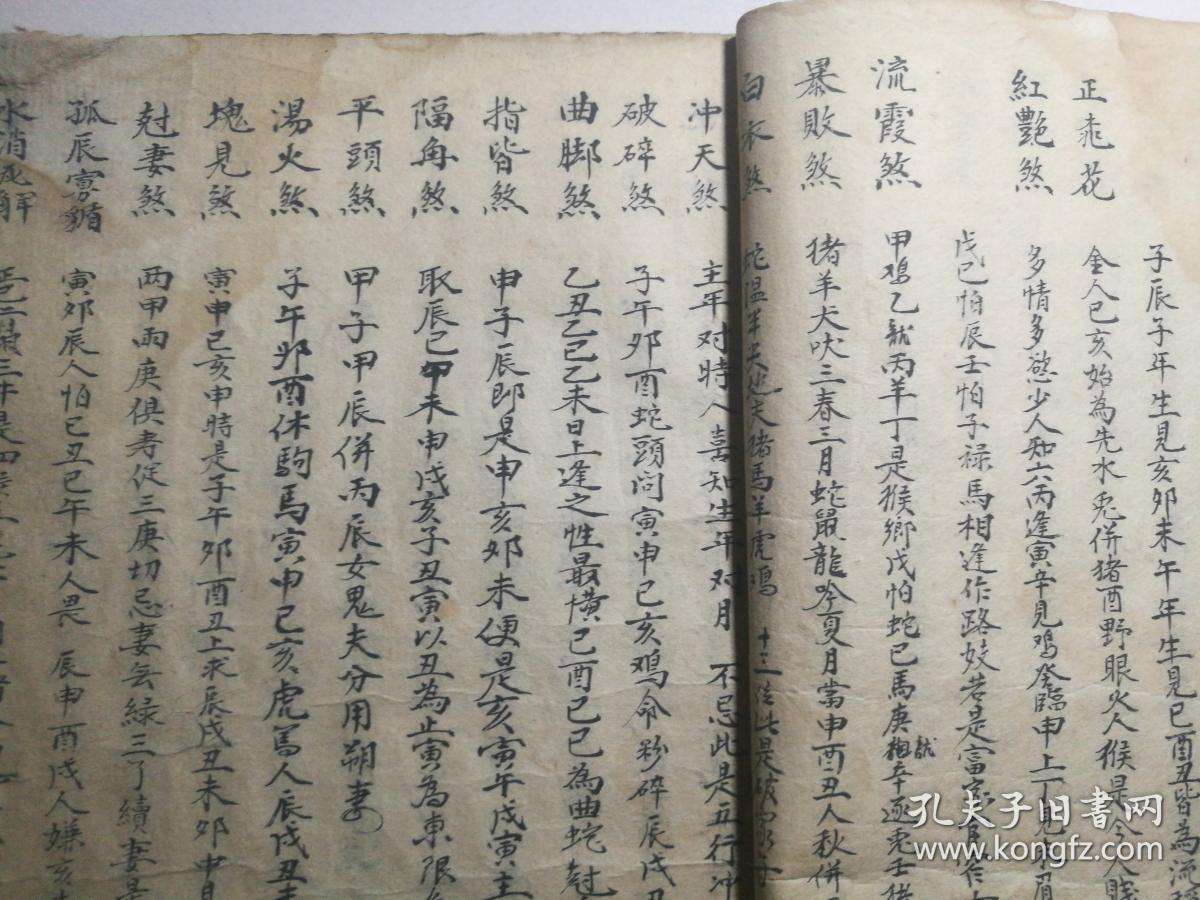 子辰子年生見亥卯未午年生見巳酉丑皆為流
正桃花 金人巳亥始為先水兎併猪酉野眼火人猴是今人賤
紅艷煞 多情多慾少人知六丙逢寅辛見鸡癸臨申上丁見未眉
戊己怕辰壬怕子禄馬相逢作路妓若是富家
流霞煞 甲鸡乙龍丙羊丁是猴鄉戊怕蛇己馬庚龍辛逐兎壬猪
暴敗煞 猪羊犬吠三春三月蛇鼠龍吟夏月當申酉丑人秋併
白衣煞 猪馬羊虎鸡 是破家
冲天煞 主年对時人喜知生年对月 不忌此是五行冲
破碎煞 子午卯酉蛇頭问寅申巳亥鸡命粉碎辰戌丑
曲脚煞 乙丑乙巳乙未日上逢之性最横己酉己巳為曲蛇尅
指皆煞 申子辰郎是申亥卯未便是亥寅午戌寅主
隔角煞 取辰巳未申戌亥子丑寅以丑為止寅為東限
平頭煞 甲子甲辰併丙辰女鬼夫分用朔妻
湯火煞 子午卯酉休駒馬寅申巳亥虎為人辰戌丑未
塊見煞 寅申巳亥申時是子午卯酉丑上求辰戌丑未卯中
尅妻煞 两甲两庚俱寿促三庚切忌妻無緑三丁續妻是
孤辰寡 寅卯辰人怕巳丑巳午未人畏 辰申酉戌人嫌亥
水消
孔夫子旧书网
www.kongfz.com